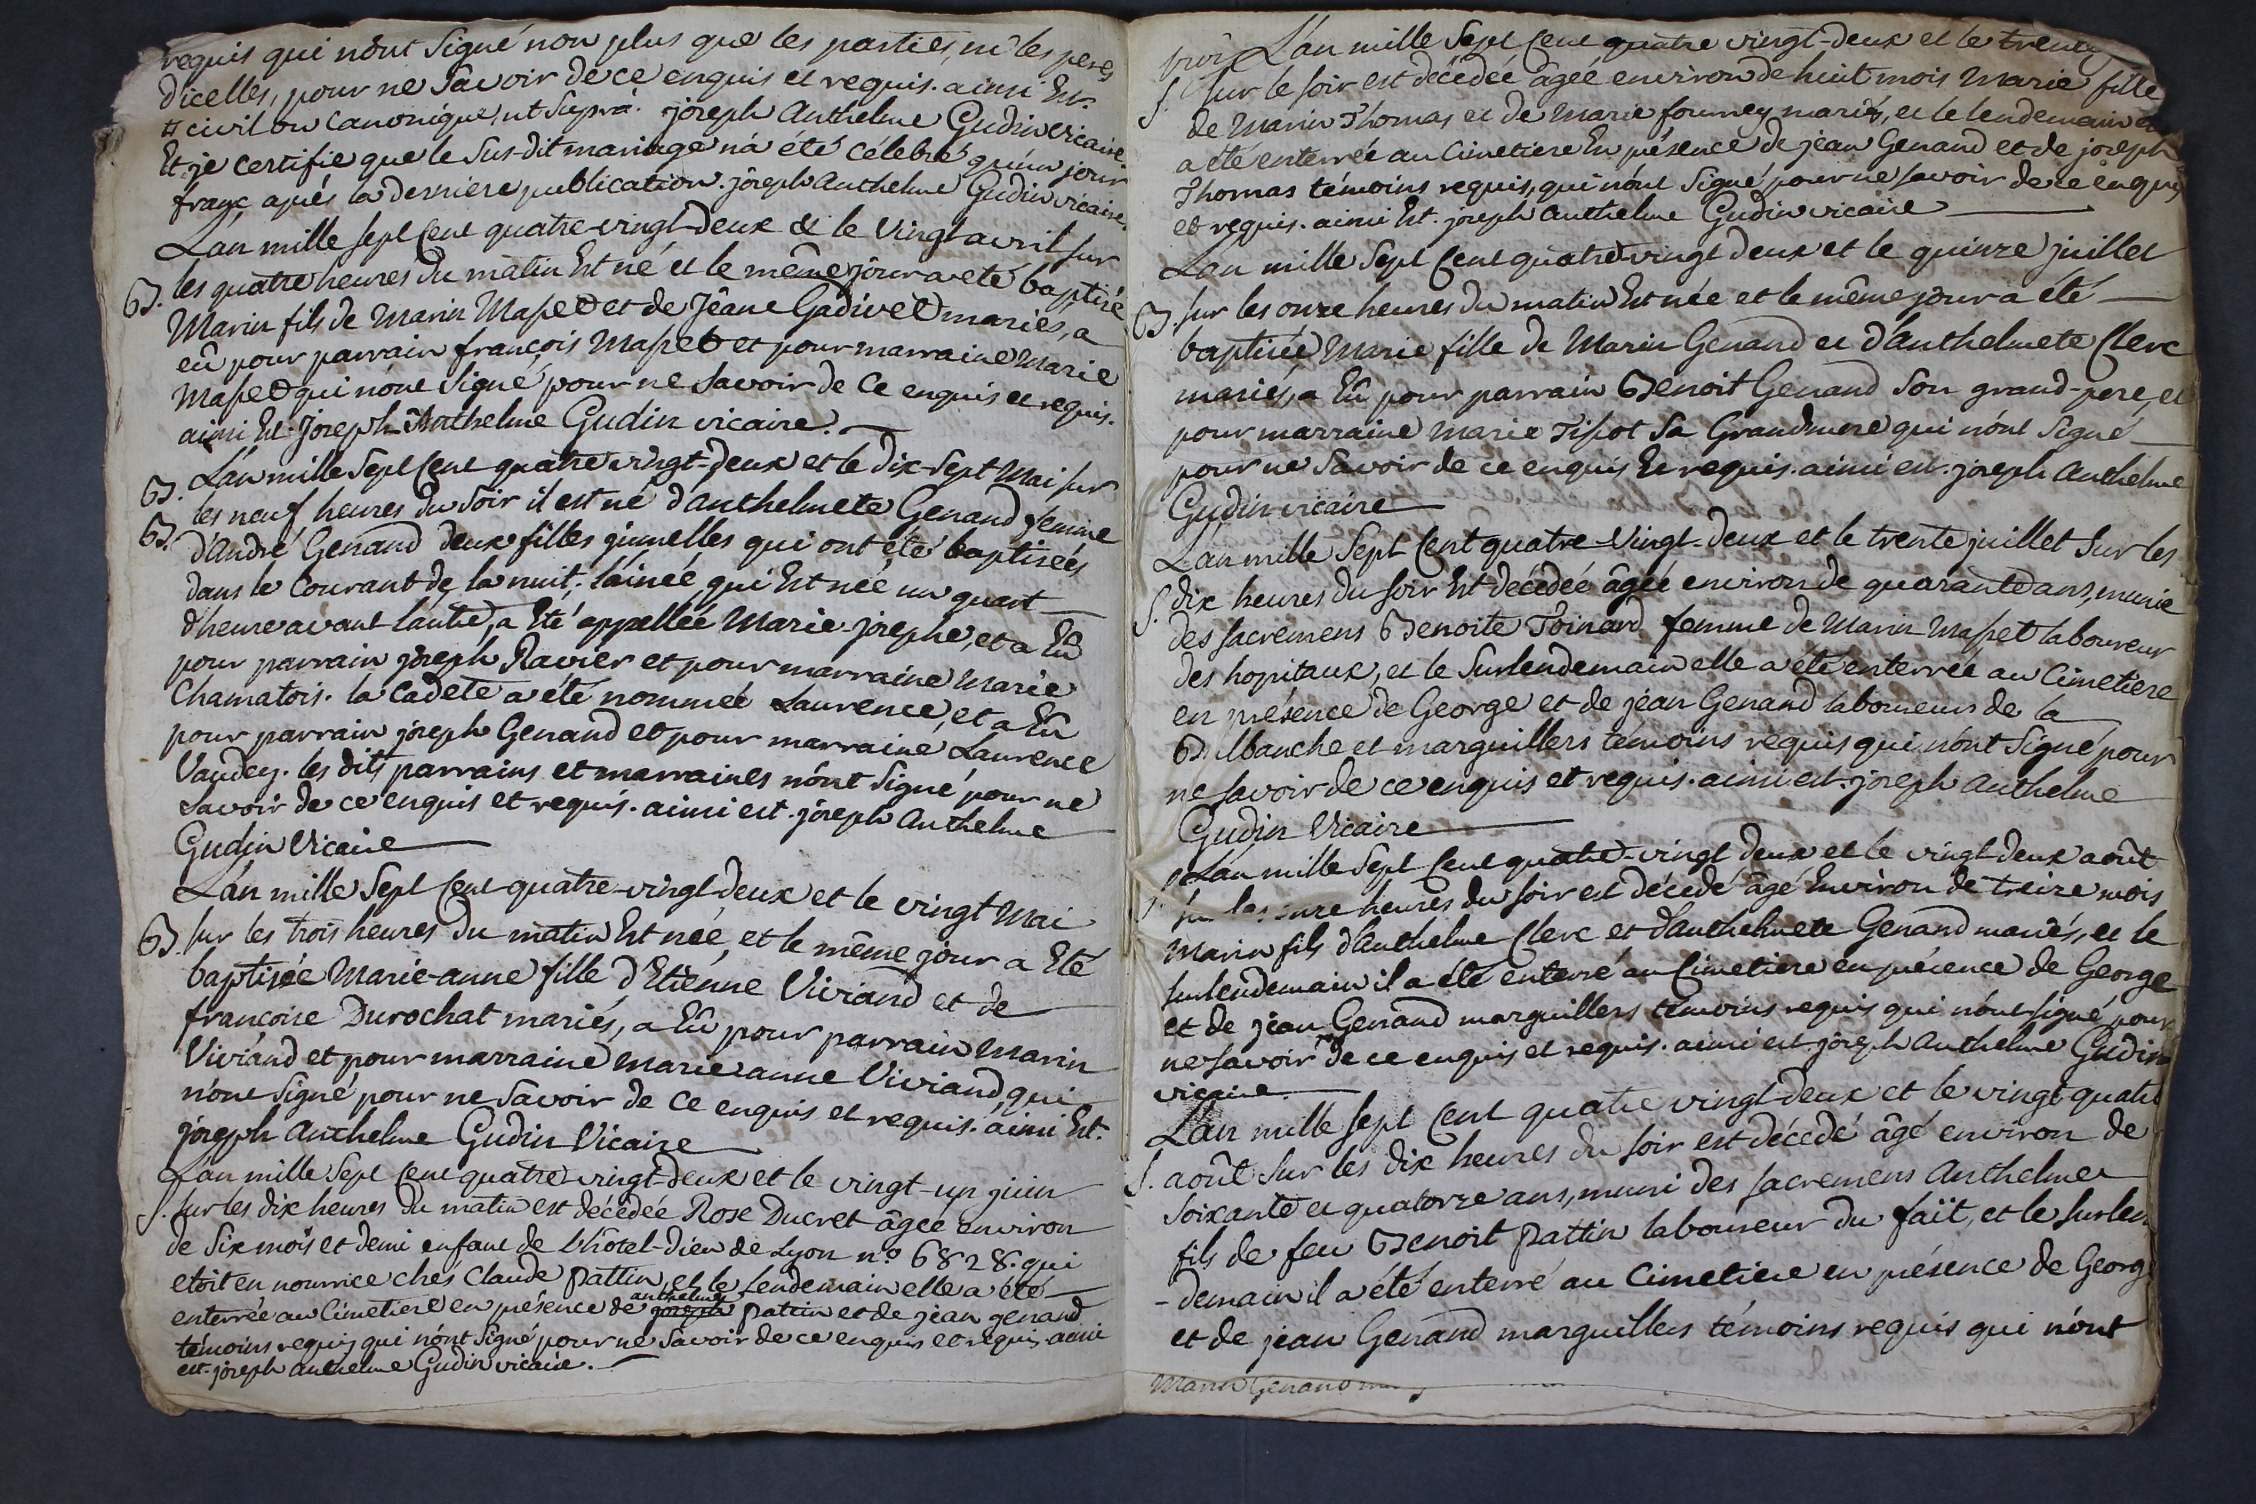 requis qui n'ont signé non plus que les parties, ni les peres
d'icelles, pour ne savoir de ce enquis et requis. ainsi Est.
# civil ou canonique, ut supra. joseph Anthelme Gudin vicaire.
Et je certifie que le sus-dit mariage n'a été célebré qu'un jour
franc après la derniere publication. joseph anthelme Gudin vicaire.
L'an mille sept Cent quatre-vingt-deux & le vingt avril sur
B. les quatre heures du matin Est né et le même jour a été baptisé
Marin fils de Marin Mapet et de Jêane Gadivet mariés, a
eû pour parrain françois Mapet et pour marraine Marie
Mapet qui n'ont signé, pour ne savoir de ce enquis et requis.
ainsi Est. Joseph Anthelme Gudin vicaire.
B. L'an mille sept Cent quatre vingt-deux et le dix-sept Mai sur
les neuf heures du soir il est né d'anthelmete Genand femme
B. d'andré Genand deux filles jumelles qui ont été baptisées
dans le courant de la nuit; l'ainée, qui Est née un quart
d'heure avant l'autre, a Eté appellée Marie-josephe, et a Eû
pour parrain joseph Ravier et pour marraine Marie
Chamatois. la cadete a été nommée Laurence, et a Eû
pour parrain joseph Genand et pour marraine Laurence
Vaudey. les dits parrains et marraines n'ont signé pour ne
savoir de ce enquis et requis. ainsi est. joseph Anthelme
Gudin Vicaire
L'an mille sept Cent quatre-vingt-deux et le vingt Mai
B. sur les trois heures du matin Est née, et le même jour a Eté
baptisée Marie-anne fille d'Etienne Viviand et de
françoise Durochat mariés, a Eû pour parrain Marin
Viviand et pour marraine Marie anne Viviand, qui
n'ont signé pour ne savoir de ce enquis et requis. ainsi Est.
joseph Anthelme Gudin Vicaire
L'an mille sept Cent quatre-vingt-deux et le vingt-un juin
S. sur les dix heures du matin est décédée Rose Ducret âgée environ
de six mois et demi enfant de l'hôtel-dieu de Lyon n.º 6828. qui
etoit en nourrice chés Claude Pattin, et le lendemain elle a été
anthelme
enterrée au Cimetiere en présence de joseph Pattin et de jean genand
témoins requis qui n'ont signé pour ne savoir de ce enquis et requis. ainsi
est. joseph anthelme Gudin vicaire.
L'an mille sept Cent quatre vingt-deux et le trente
S. sur le soir est décédée âgée environ de huit mois Marie fille
de Marin Thomas et de Marie fourney mariés, et le lendemain
a été enterrée au Cimetiere En présence de jean Genand et de joseph
Thomas témoins requis, qui n'ont signé pour ne savoir de ce enquis
et requis. ainsi Est. joseph Anthelme Gudin vicaire
L'an mille sept Cent quatre vingt deux et le quinze juillet
B. sur les onze heures du matin Est née et le même jour a été
baptisée Marie fille de Marin Genand et d'Anthelmete Clerc
mariés, a Eû pour parrain Benoit Genand son grand-pere, et
pour marraine Marie Tipot sa Grandmere qui n'ont signé
pour ne savoir de ce enquis Et requis. ainsi est. joseph Anthelme
Gudin vicaire
L'an mille sept Cent quatre-Vingt-deux et le trente juillet sur les
S. dix heures du soir Est décédée âgée environ de quarante ans, munie
des sacremens Benoite Toinard femme de Marin Mapet laboureur
des hopitaux, et le Surlendemain elle a été enterrée au Cimetiere
en présence de George et de jean Genand laboureurs de la
Blanche et marguillers témoins requis qui n'ont signé pour
ne savoir de ce enquis et requis. ainsi est. joseph Anthelme
Gudin Vicaire
L'an mille sept Cent quatre-vingt deux et le vingt-deux août
sur les onze heures du soir est décédé âgé Environ de treize mois
Marin fils d'anthelme Clerc et d'anthelmete Genand mariés, et le
surlendemain il a été enterré au Cimetiere en présence de George
et de jean Genand marguillers témoins requis qui n'ont signé pour
ne savoir de ce enquis et requis. ainsi est. joseph Anthelme Gudin
vicaire.
L'an mille sept Cent quatre vingt-deux et le vingt-quatre
S. août sur les dix heures du soir est décédé âgé environ de
soixante et quatorze ans, muni des sacremens Anthelme
fils de feu Benoit Pattin laboureur du faït, et le surlen
-demain il a été enterré au Cimetiere en présence de George
et de jean Genand marguillers témoins requis qui n'ont
Marin Genand